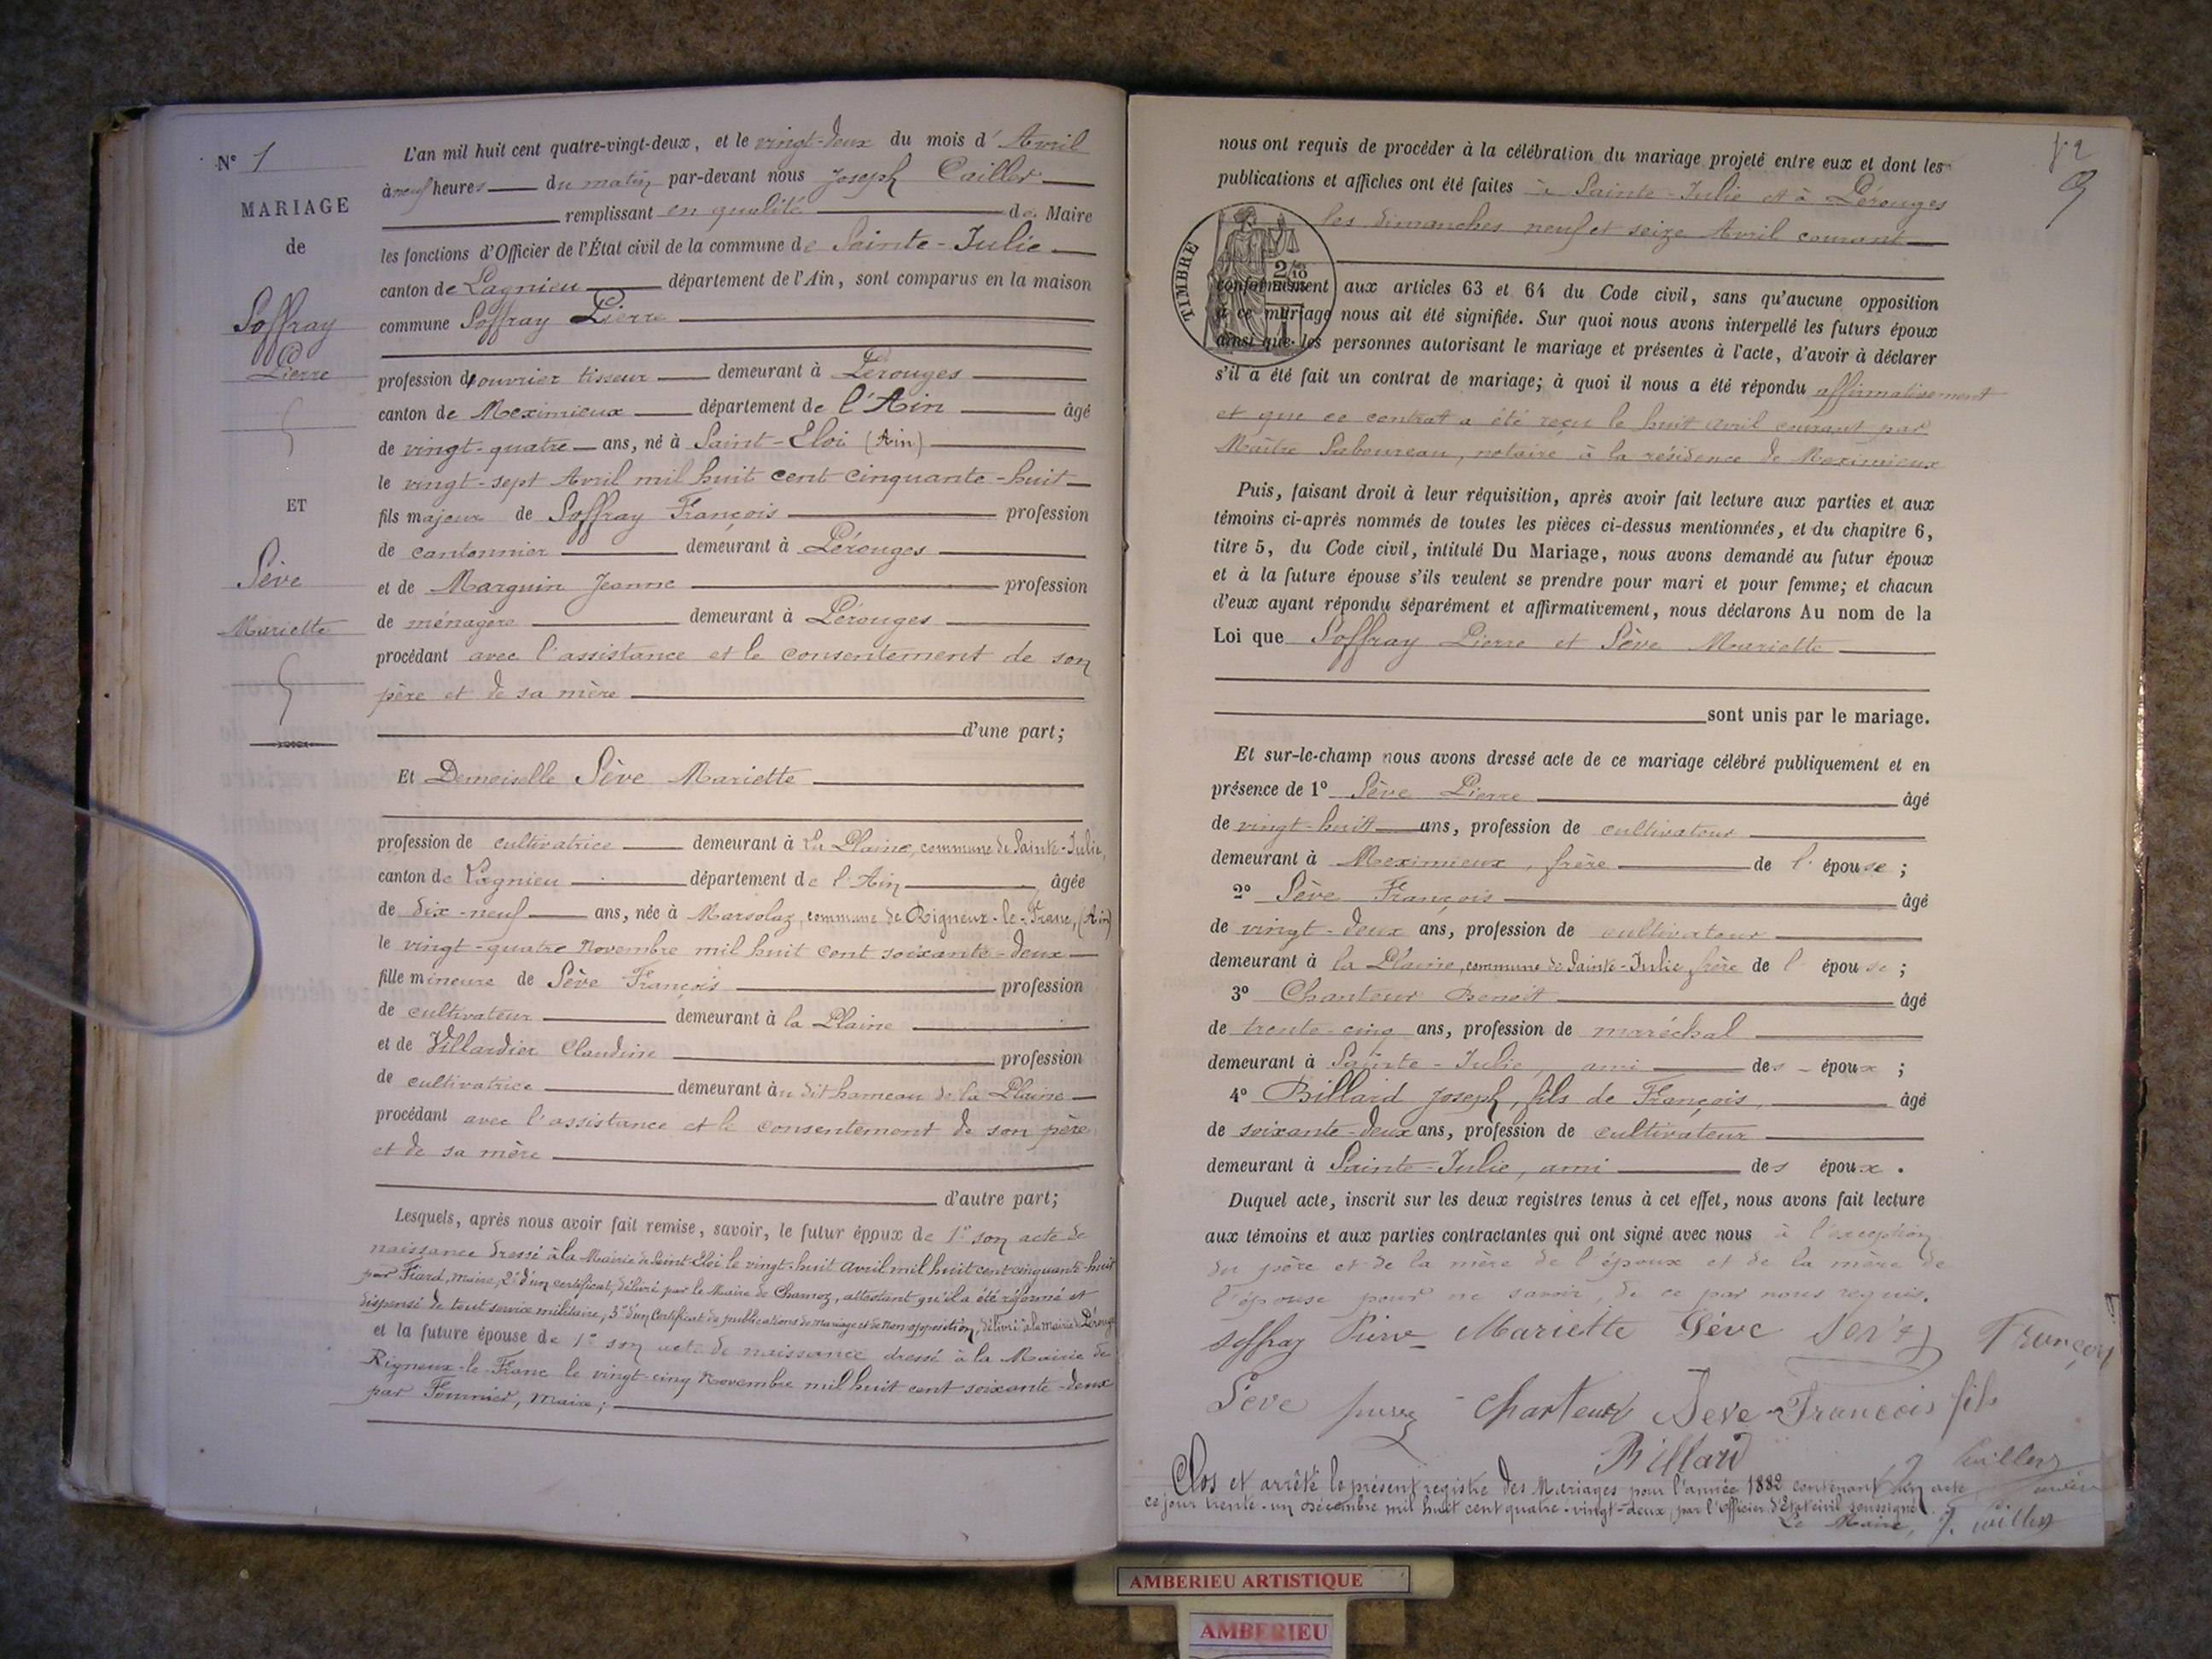 N° 1
MARIAGE
de
Soffray
Pierre
ET
Sève
Mariette
L'an mil huit cent quatre-vingt-deux, et le vingt-deux du mois d'Avril
à neuf heures du matin par-devant nous Joseph Cailler
remplissant en qualité de Maire
les fonctions d'Officier de l'État civil de la commune de Sainte-Julie
canton de Lagnieu département de l'Ain, sont comparus en la maison
commune Soffray Pierre
profession d'ouvrier tisseur demeurant à Pérouges
canton de Meximieux département de l'Ain âgé
de vingt-quatre ans, né à Saint-Eloi (Ain)
le vingt-sept Avril mil huit cent cinquante-huit
fils majeur de Soffray François profession
de cantonnier demeurant à Pérouges
et de Marguin Jeanne profession
de ménagère demeurant à Pérouges
procédant avec l'assistance et le consentement de son
père et de sa mère
d'une part;
Et Demoiselle Sève Mariette
profession de cultivatrice demeurant à La Plaine, commune de Sainte-Julie,
canton de Lagnieu département de l'Ain âgée
de dix-neuf ans, née à Marsolaz, commune de Rigneux-le-Franc, (Ain)
le vingt-quatre Novembre mil huit cent soixante-deux
fille mineure de Sève François profession
de cultivateur demeurant à la Plaine
et de Villardier Claudine profession
de cultivatrice demeurant au dit hameau de la Plaine
procédant avec l'assistance et le consentement de son père
et de sa mère
d'autre part;
Lesquels, après nous avoir fait remise, savoir, le futur époux de 1° son acte de
naissance dressé à la Mairie de Saint-Eloi le vingt-huit avril mil huit cent cinquante-huit
par Fiard, maire, 2° d'un certificat, délivré par le Maire de Charnoz, attestant qu'il a été réformé et
dispensé de tout service militaire, 3° d'un Certificat de publications de mariage et de non opposition, délivré à la mairie de Pérouges
et la future épouse de 1° son acte de naissance dressé à la Mairie de
Rigneux-le-Franc le vingt-cinq Novembre mil huit cent soixante-deux
par Fournier, Maire;
nous ont requis de procéder à la célébration du mariage projeté entre eux et dont les
publications et affiches ont été faites à Sainte-Julie et à Pérouges
les dimanches neuf et seize Avril courant
TIMBRE
2/10
conformément aux articles 63 et 64 du Code civil, sans qu'aucune opposition
à ce mariage nous ait été signifiée. Sur quoi nous avons interpellé les futurs époux
ainsi que les personnes autorisant le mariage et présentes à l'acte, d'avoir à déclarer
s'il a été fait un contrat de mariage; à quoi il nous a été répondu affirmativement
et que ce contrat a été reçu le huit avril courant par
Maître Saboureau, notaire à la résidence de Meximieux
Puis, faisant droit à leur réquisition, après avoir fait lecture aux parties et aux
témoins ci-après nommés de toutes les pièces ci-dessus mentionnées, et du chapitre 6,
titre 5, du Code civil, intitulé Du Mariage, nous avons demandé au futur époux
et à la future épouse s'ils veulent se prendre pour mari et pour femme; et chacun
d'eux ayant répondu séparément et affirmativement, nous déclarons Au nom de la
Loi que Soffray Pierre et Sève Mariette
sont unis par le mariage.
Et sur-le-champ nous avons dressé acte de ce mariage célébré publiquement et en
présence de 1° Sève Pierre âgé
de vingt-huit ans, profession de cultivateur
demeurant à Meximieux, frère de l'épouse;
2° Sève François âgé
de vingt-deux ans, profession de cultivateur
demeurant à la Plaine, commune de Sainte-Julie frère de l'épouse;
3° Chanteur Benoit âgé
de trente-cinq ans, profession de maréchal
demeurant à Sainte-Julie, ami des époux;
4° Billard Joseph, fils de François, âgé
de soixante-deux ans, profession de cultivateur
demeurant à Sainte-Julie, ami des époux.
Duquel acte, inscrit sur les deux registres tenus à cet effet, nous avons fait lecture
aux témoins et aux parties contractantes qui ont signé avec nous à l'exception
du père et de la mère de l'époux et de la mère de
l'épouse pour ne savoir, de ce par nous requis.
Soffray Pierre Mariette Sève Sève François
Sève pierre Chanteur Seve François fils
Billard J Cailler
Clos et arrêté le présent registre des Mariages pour l'année 1882 contenant un acte
ce jour trente-un Décembre mil huit cent quatre-vingt-deux, par l'officier d'Etat civil soussigné.
Le Maire, J. Cailler
AMBERIEU ARTISTIQUE
AMBERIEU